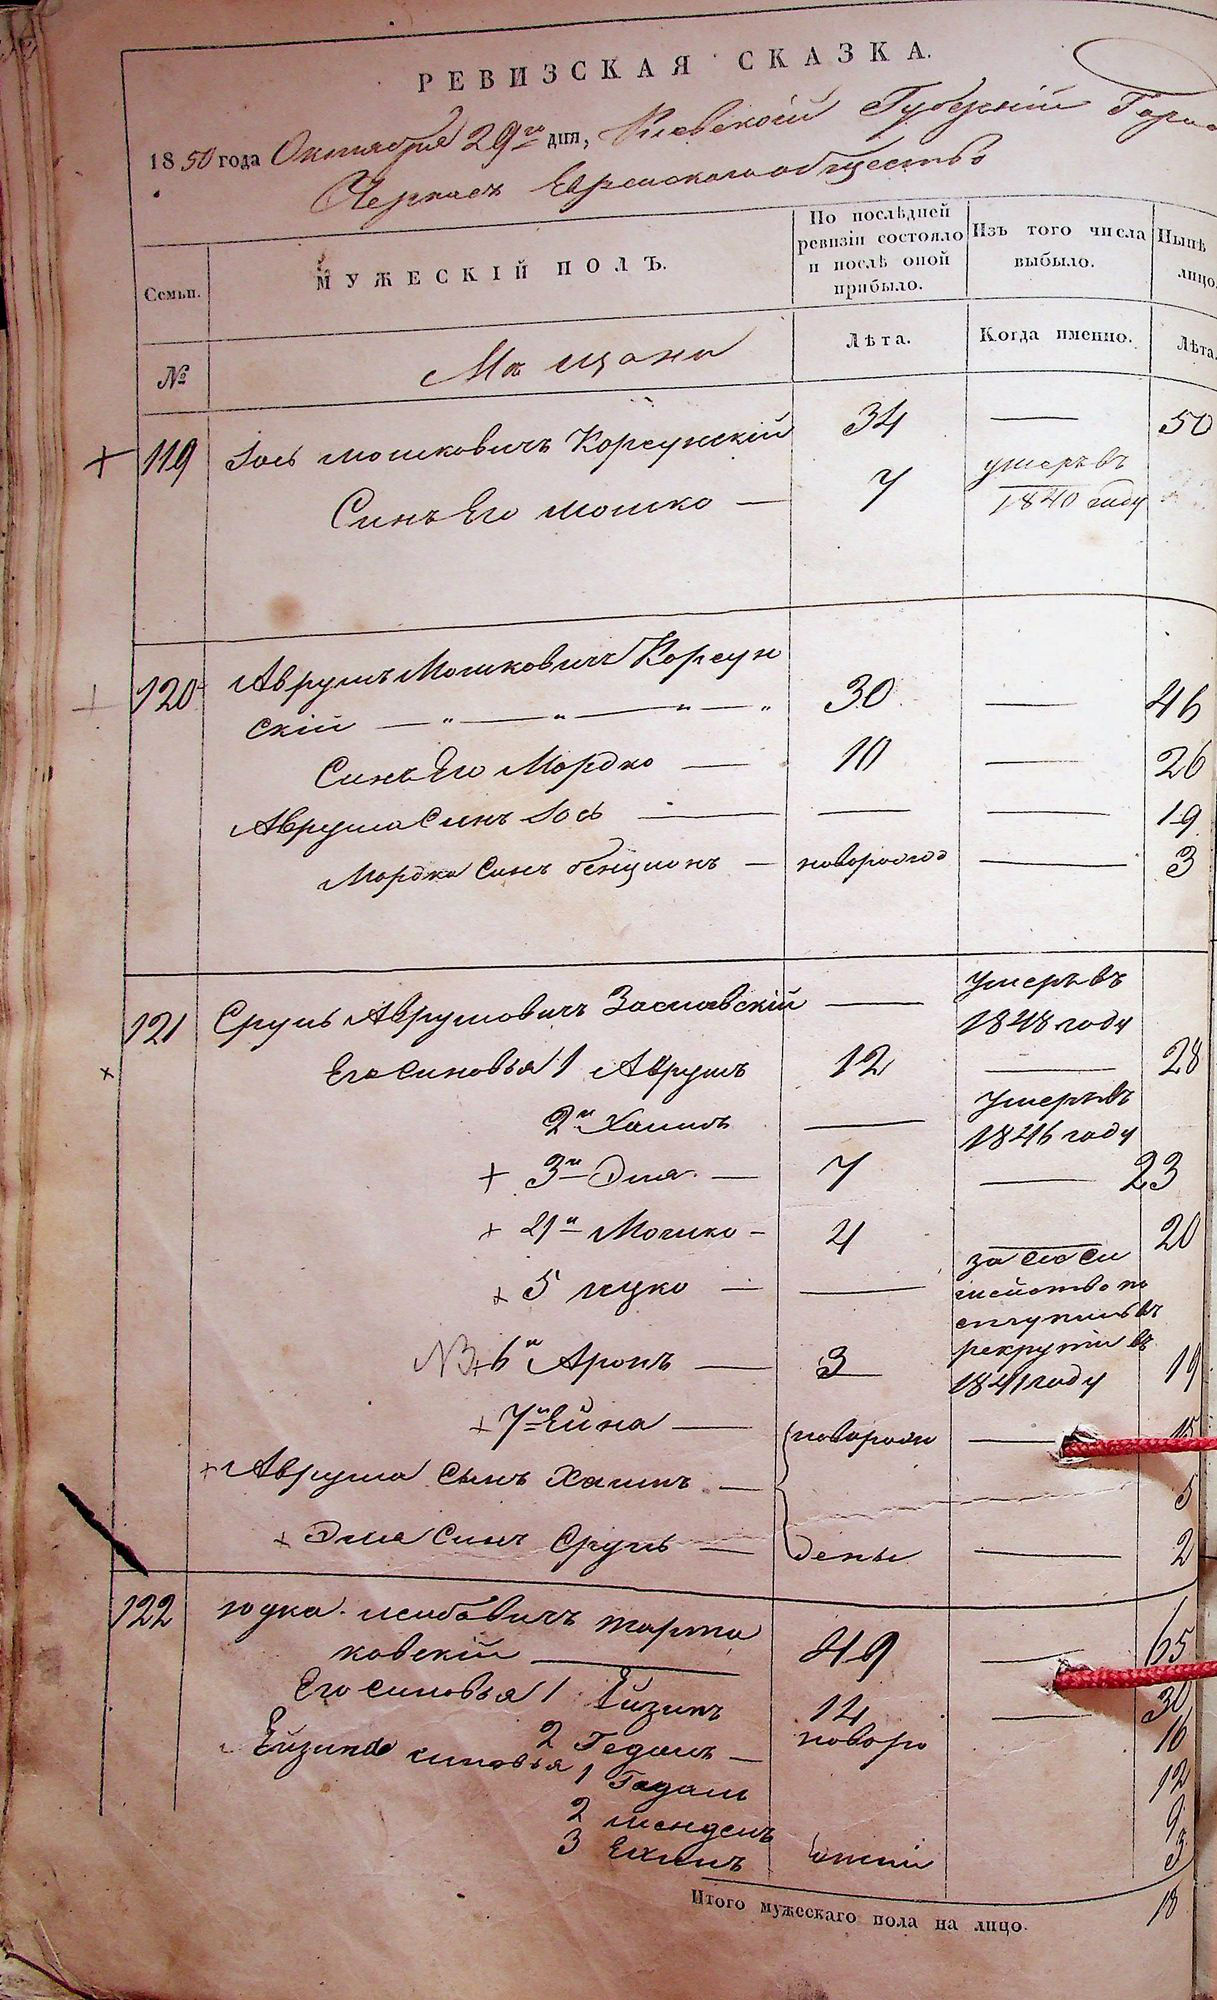 РЕВИЗСКАЯ СКАЗКА.
1850 года Октября 29го дня, Киевской Губерніи Горо
Черкасъ Еврейскаго общества
Семьи. МУЖЕСКІЙ ПОЛЪ. По послѣдней ревизіи состояло и послѣ оной прибыло. Изъ того числа выбыло. Нынѣ лицо.
№ Мѣщане Лѣта. Когда именно. Лѣта.
119 Іось Мошковичъ Корсунскій 34 — 50
Синъ Его Мошко — 7 умеръ въ 1840 году
120 Аврумъ Мошковичъ Корсун
скій — „ — „ — „ — „ 30 — 46
Синъ Его Мордко — 10 — 26
Аврума Синъ Іось — — — 19
Мордка Синъ бенционъ — новорожд — 3
121 Сруль Аврумовичъ Заславскій — умеръ въ 1848 году
Его синовья 1 Аврумъ 12 — 28
2й Хаимъ — умеръ въ 1846 году
+ 3й Эля — 7 — 23
+ 4й Мошко — 4 — 20
+ 5 Ицко — — за
поступилъ въ рекруты въ 1841 году
NB + 6й Аронъ — 3 19
+ 7й Ейна — новорож — 15
+ Аврума сынъ Хаимъ — 5
+ Эля Синъ Сруль — дены — 2
122 Юдка Лейбовичъ Тарта
ковскій — 49 — 65
Его синовья 1 Ейзикъ 14 — 30
2 Гедаль — новоро 16
Ейзика синовья 1 Гедаль 12
2 Мендель 9
3 3
Итого мужескаго пола на лицо. 18